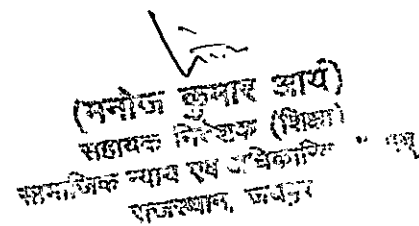 (मनोज कुमार आर्य)
सहायक निदेशक (शिक्षा)
सामाजिक न्याय एवं अधिकारिता
राजस्थान, जयपुर